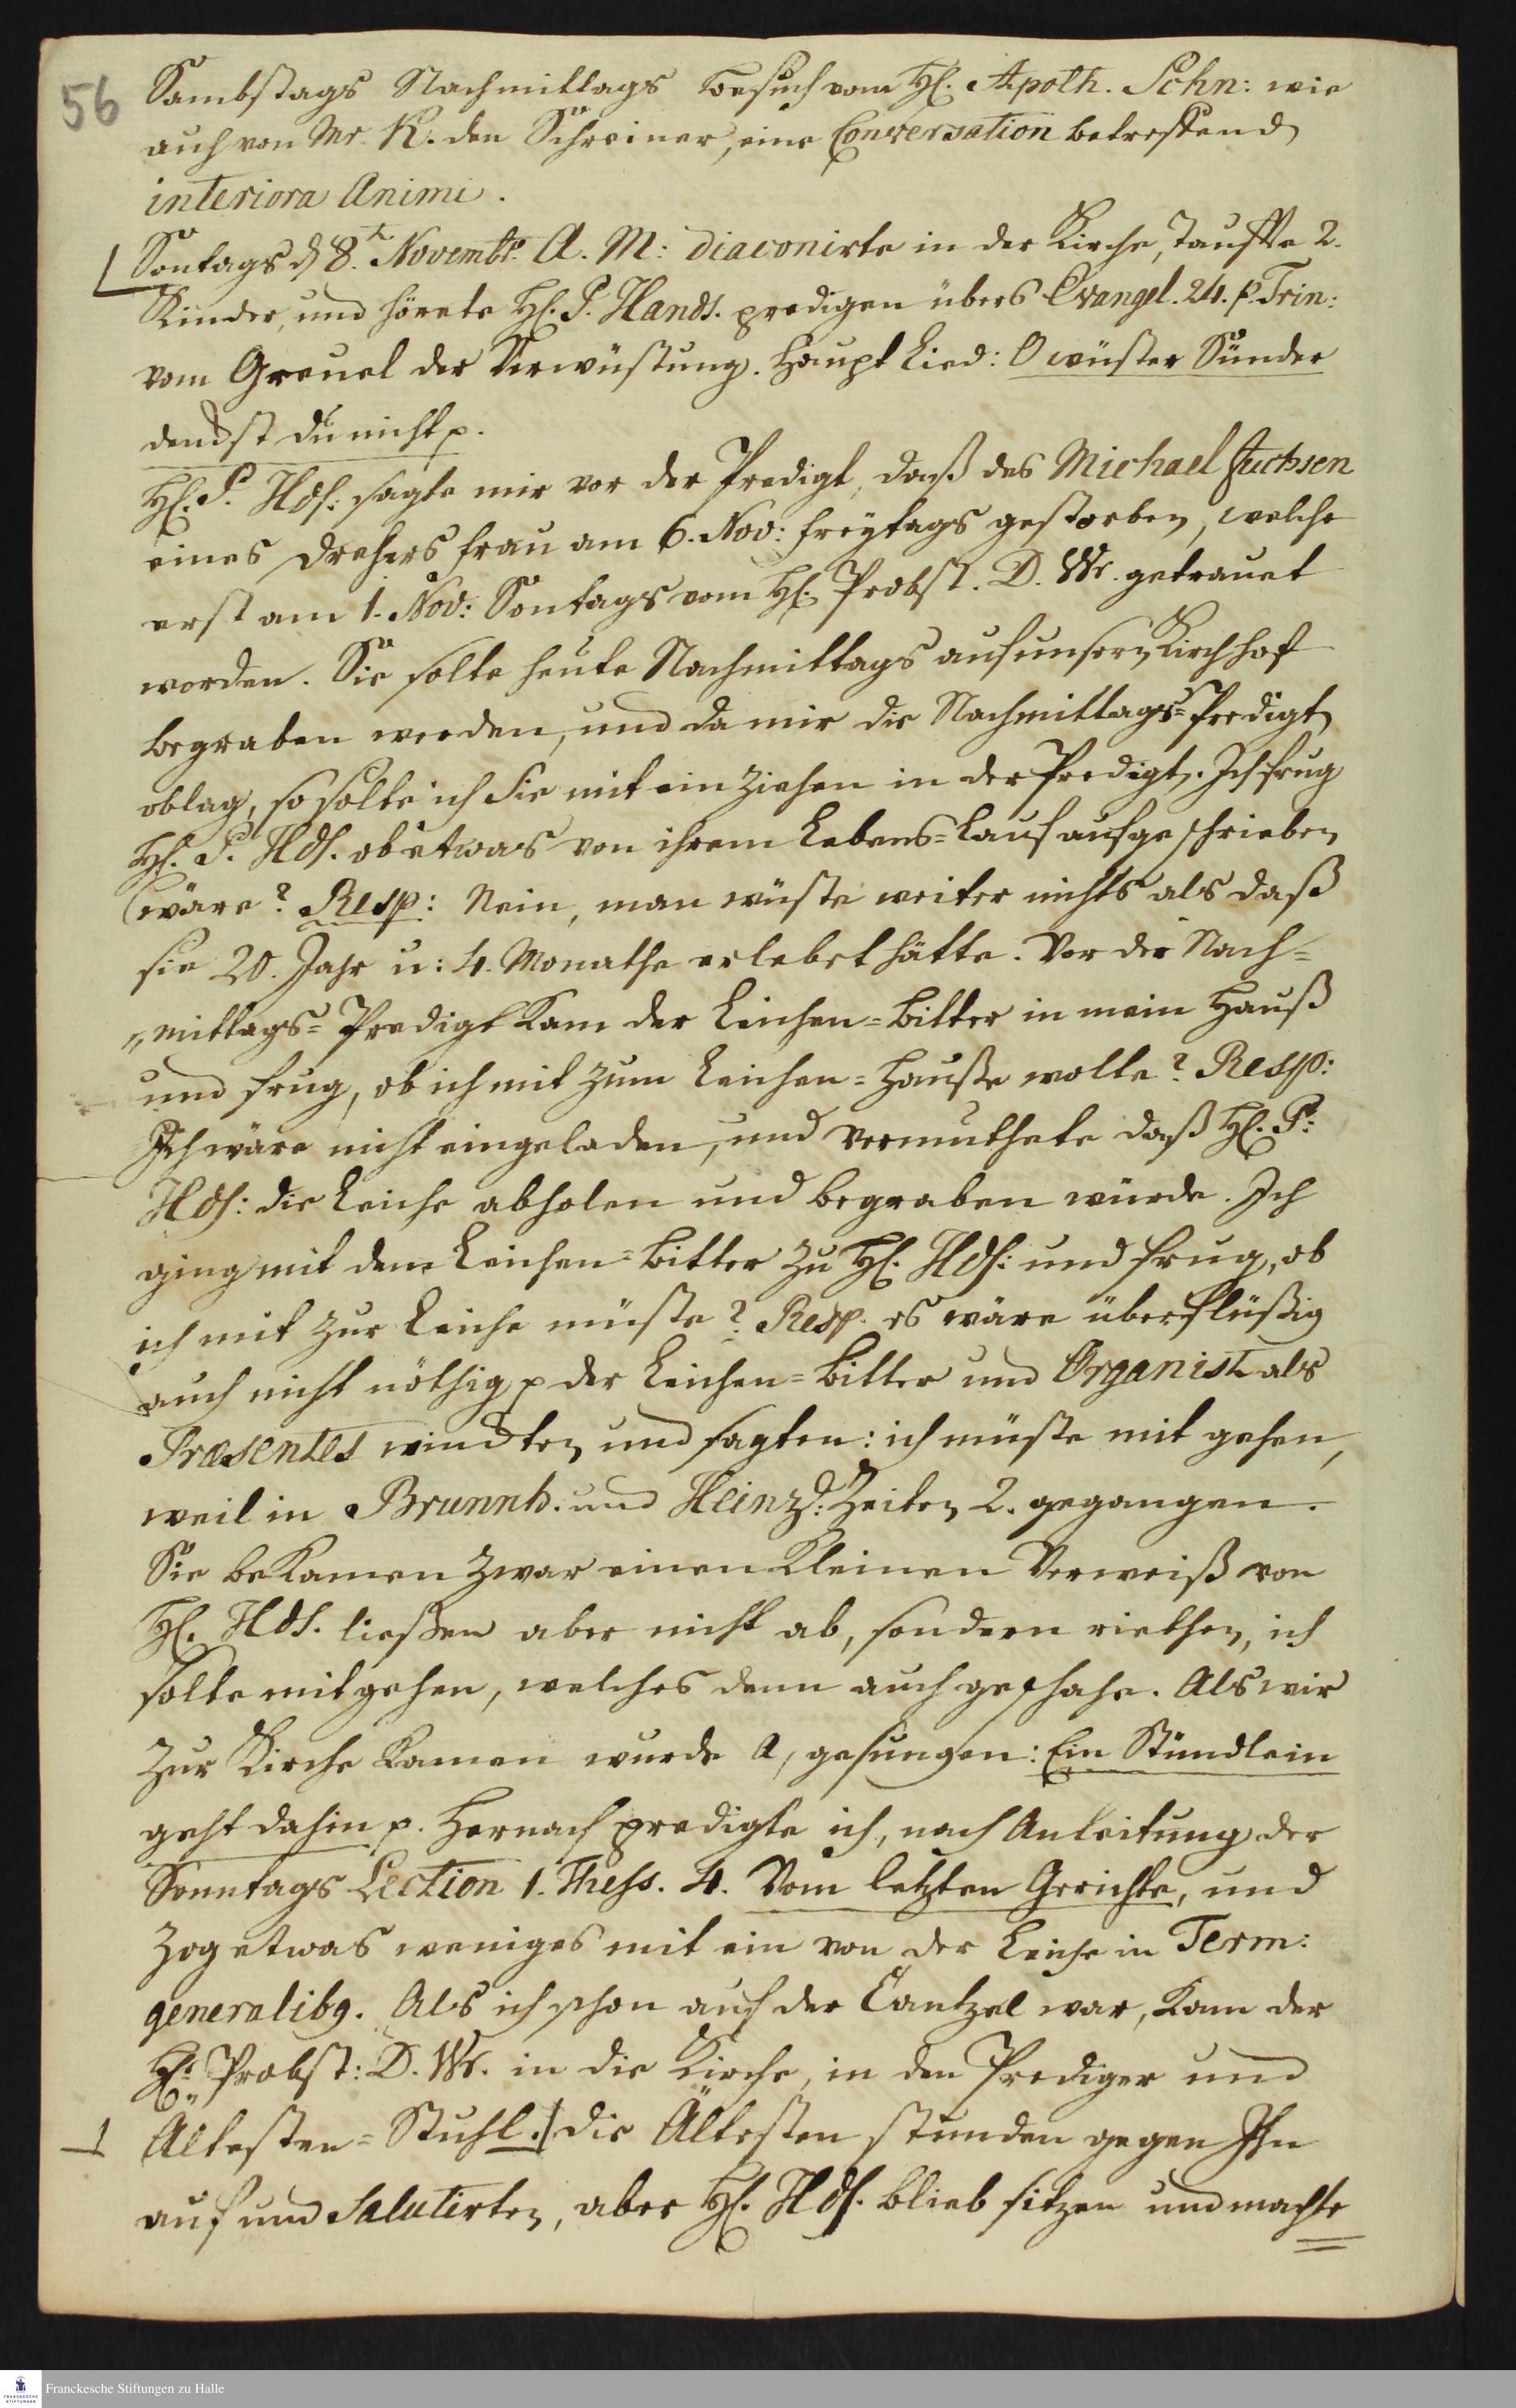 56
Sambstags Nachmittags besuch vom H. Apoth. Schn: wie
auch von Mr. K. den Schreiner, eine Conversation betreffend
interiora Animi.
Sontags d 8.t Novembr. A. M: diaconirte in der Kirche, tauffte 2.
Kinder, und hörete H. P. Hands. predigen übers Evangel. 24. p Trin:
vom Greuel der Verwüstung. Haupt Lied: O wüster Sünder
denckst du nicht p.
H. P. Hds: sagte mir vor der Predigt, daß des Michael Fuchsen
eines Drehers frau am 6. Nov: freytags gestorben, welche
erst am 1. Nov: Sontags vom H. Probst. D. Wr. getrauet
worden. Sie solte heute Nachmittags auf unsern Kirchhof
begraben werden, und da mir die Nachmittags=Predigt
oblag, so solte ich Sie mit ein ziehen in der Predigt. Ich frug
H. P. Hds. ob etwas von ihrem Lebens=Lauf aufgeschrieben
wäre? Resp: Nein, man wüste weiter nichts als daß
sie 20. Jahr u: 4. Monathe erlebet hätte. Vor der Nach=
„mittags=Predigt kam der Leichen=bitter in mein Hauß
und frug, ob ich mit zum Leichen=Hauße wolte? Resp:
Ich wäre nicht eingeladen, und vermuthete daß H. P:
Hds: die Leiche abholen und begraben würde. Ich
ging mit dem Leichen=bitter zu H. Hds: und frug, ob
ich mit zur Leiche müste? Resp. es wäre überflüßig
auch nicht nöthig p der Leichen=bitter und Organist als
Præsentes windten und sagten: ich müste mit gehen,
weil in Brunnh. und Heinzd: Zeiten 2. gegangen.
Sie bekamen zwar einen kleinen Verweiß von
H. Hds. ließen aber nicht ab, sondern riethen, ich
solte mitgehen, welches denn auch geschahe. Als wir
zur Kirche kamen wurde a, gesungen: Ein Stündlein
geht dahin p. Hernach predigte ich, nach Anleitung der
Sonntags Lection 1. Thess. 4. Vom letzten Gerichte, und
zog etwas weniges mit ein von der Leiche in Term:
generalibg. Als ich schon auf der Cantzel war, kam der
H: Probst: D. Wr. in die Kirche, in den Prediger und
Ältesten=Stuhl. die Ältesten stunden gegen Ihn
auf und Salutirten, aber H. Hds. blieb sitzen und machte
Franckesche Stiftungen zu Halle